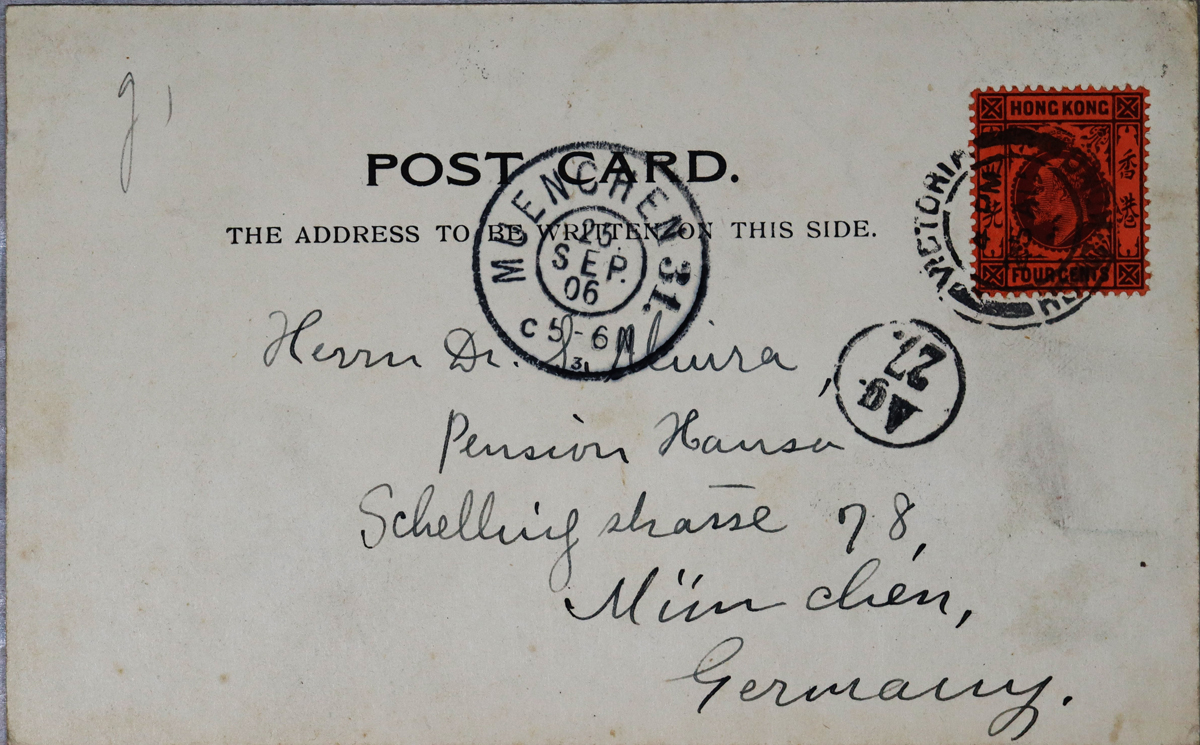 g,
HONG KONG
香港
FOUR CENTS
VICTORIA
HONG KONG
PM
POST CARD.
THE ADDRESS TO BE WRITTEN ON THIS SIDE.
MUENCHEN 31.
SEP.
06
C 5-6 N
31
Ag.
27.
Herrn Dr. S. Alvira,
Pension Hansa
Schellingstrasse 78,
München,
Germany.